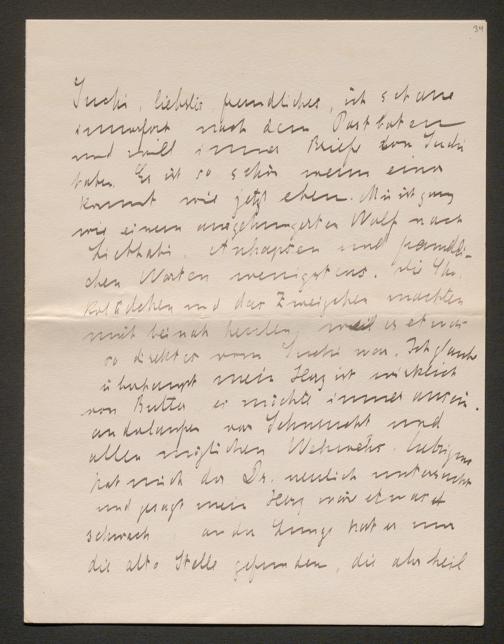 34
Suchi, liebstes freundliches, ich schaue
immerfort nach dem Postboten
und will immer Briefe von Suchi
haben. Es ist so schön wenn einer
kommt wie jetzt eben. Mir ist ganz
wie einem ausgehungerten Wolf nach
und freundli-
chen Worten wenigstens. Die
und das Zweigchen machten
mich beinah heulen, weil es etwas
so direktes vom Suchi war. Ich glaube
überhaupt mein Herz ist wirklich
von Butter es möchte immer ausein-
anderlaufen vor Sehnsucht und
allen möglichen Wehmuten. Uebrigens
hat mich der Dr. neulich untersucht
und gesagt mein Herz wäre etwas
schwach an der Lunge hat er nur
die alte Stelle gefunden, die aber heil